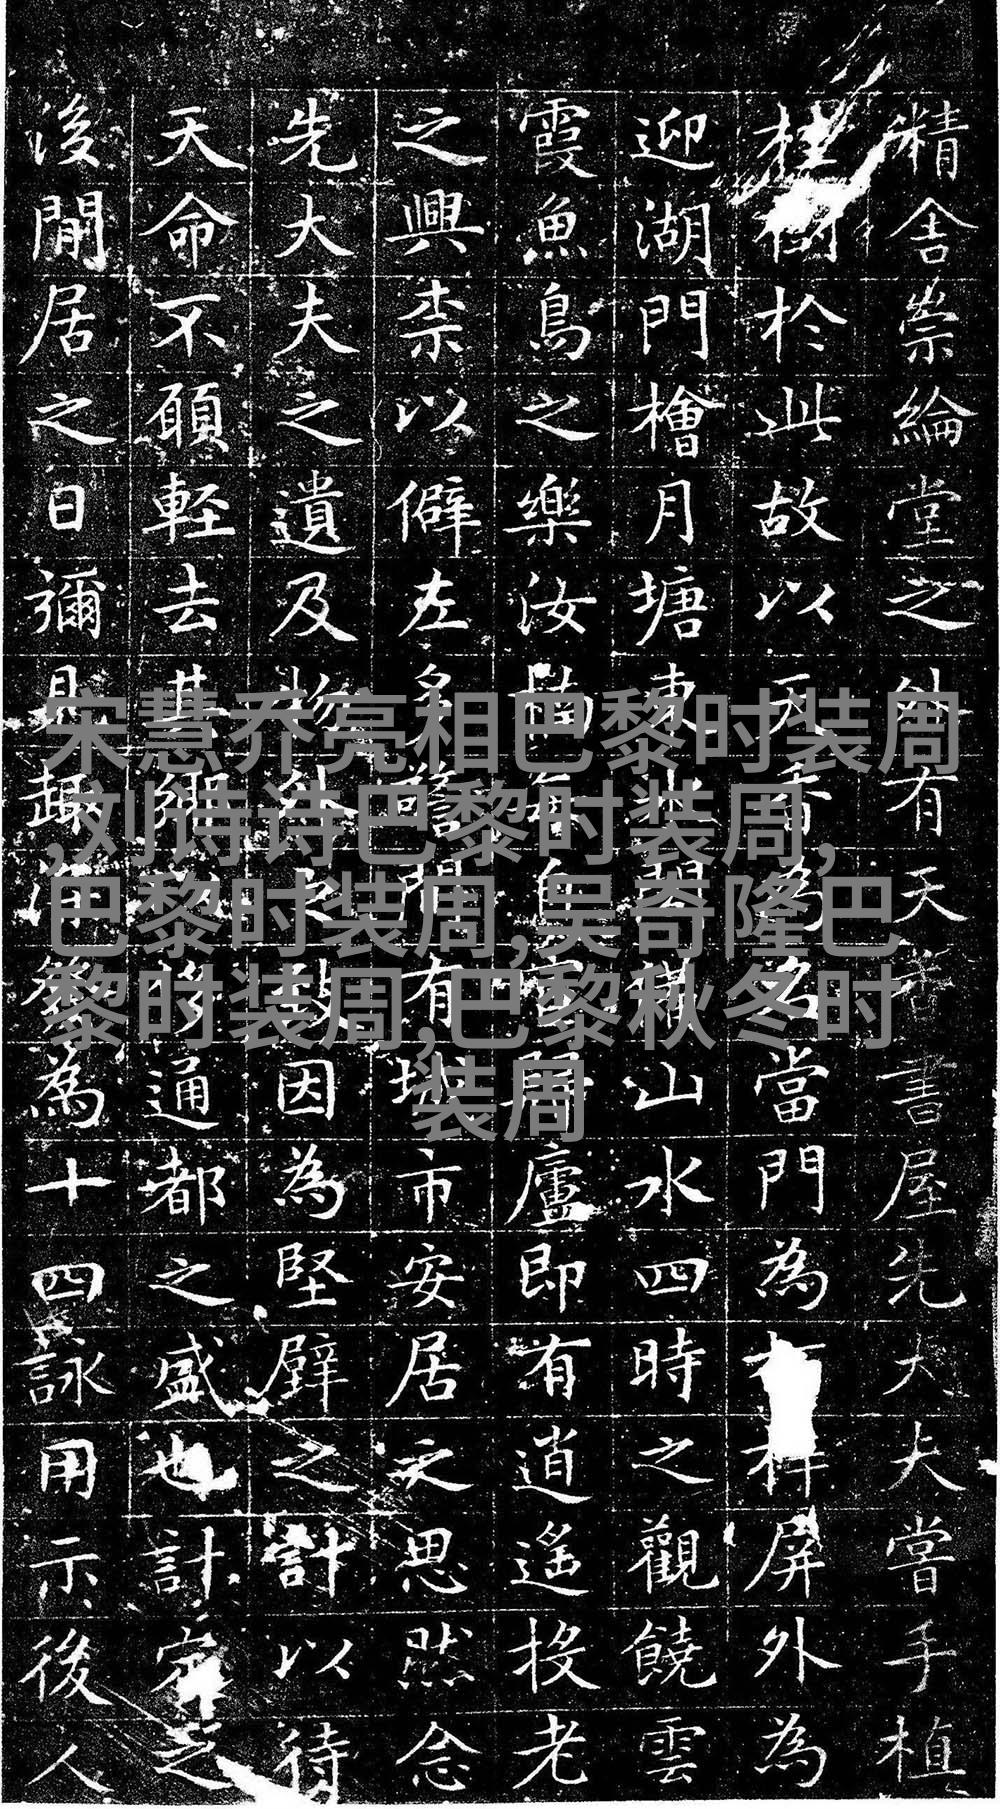 精舍崇綸堂之外有天香書屋先大夫嘗手植
桂樹於此故以天香為名當門為樨屏外為
迎湖門檜月塘東橫山水四時之觀饒雲
霞魚鳥之樂汝楠每自歸廬即有逍遙投老
之興柰以僻左多間有城市安居之思然念
先大夫之遺及物外之致因為堅壁之計以待
天命不願輕去其鄉移通都之盛也計定之
後閒居之日彌趣為十四詠用示後人
宋慧乔亮相巴黎时装周
,刘诗诗巴黎时装周,
巴黎时装周,吴奇隆巴
黎时装周,巴黎秋冬时
装周